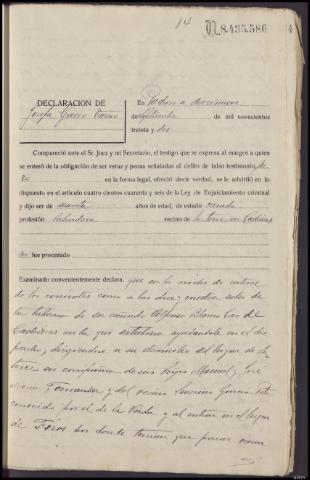 14
N.8.495.586
DECLARACION DE
Josefa García
En Padrón a diecinueve
de Septiembre de mil novecientos
treinta y dos
Compareció ante el Sr. Juez y mi Secretario, el testigo que se expresa al margen a quien
se enteró de la obligación de ser veraz y penas señaladas al delito de falso testimonio,
en la forma legal, ofreció decir verdad, se le advirtió en lo
dispuesto en el artículo cuatro cientos cuarenta y seis de la Ley de Enjuiciamiento criminal
y dijo ser de años de edad, de estado casada
profesión labradora vecino de la torre en
no fue procesado
Examinado convenientemente declara. que en la noche de catorce
de los corrientes como a las diez y media salio de
la taberna de su cuñado Alfonso Blanco de
en la que estubiera ayudandole en el des
pacho, dirigiendose a su domicilio del lugar de la
torre en compañia de sus hijos Manuel y José
Fernandez y del vecino Severino Garcia
conocido por el de la y al entrar en el lugar
de por donde tenian que pasar